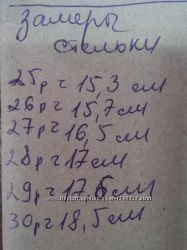 Замеры
стельки
25р г 15,3 см
26р г 15,7 см
27р г 16,5 см
28р г 17 см
29р г 17,6 см
30р г 18,5 см